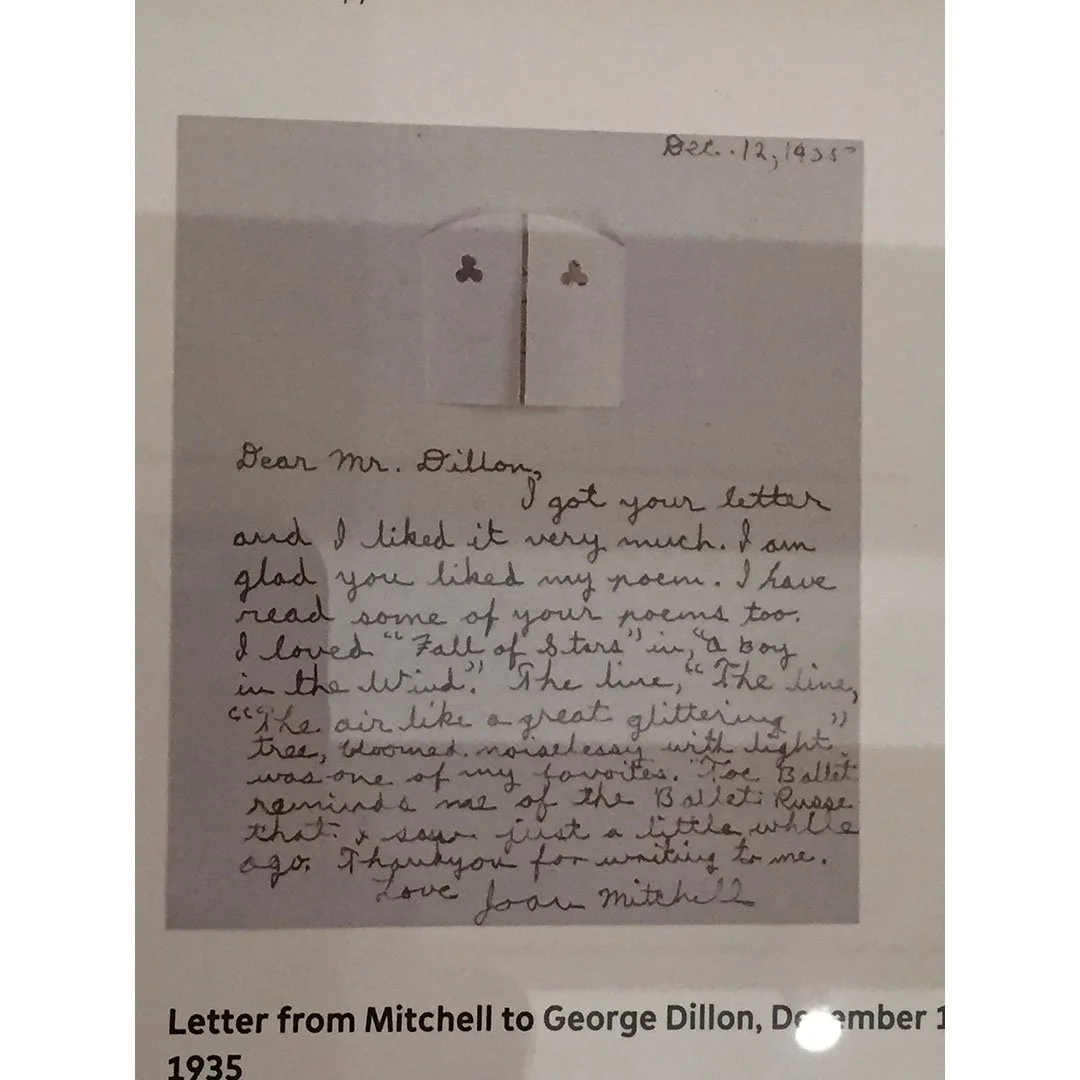 Dec. 12, 1935
Dear Mr. Dillon,
I got your letter
and I liked it very much. I am
glad you liked my poem. I have
read some of your poems too.
I loved "Fall of Stars" in, "a boy
in the Wind." The line, "The line,
"""The air like a great glittering
tree, bloomed noiselessy with light."
was one of my favorites. "Toe Ballet
reminds me of the Ballet Russe
that I saw just a little while
ago. Thankyou for writing to me.
Love Joan Mitchell
Letter from Mitchell to George Dillon, December 1
1935